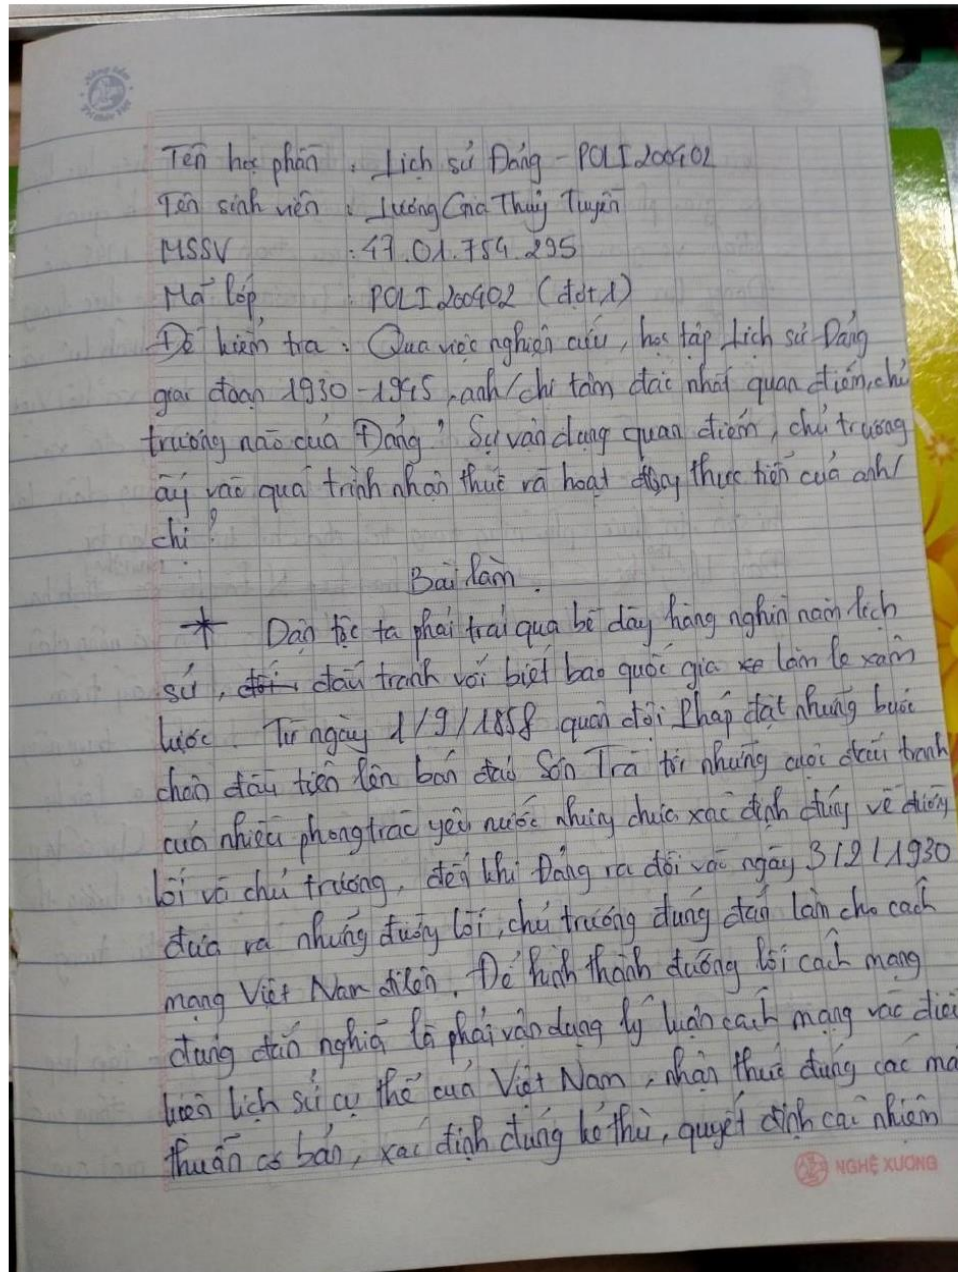 Tên học phần : Lịch sử Đảng - POLI200402
Tên sinh viên : Lương Gia Thuỵ Tuyền
MSSV : 47.01.754.295
Mã lớp : POLI200402 (đợt 1)
Đề kiểm tra : Qua việc nghiên cứu, học tập Lịch sử Đảng
giai đoạn 1930 - 1945, anh/chị tâm đắc nhất quan điểm, chủ
trương nào của Đảng? Sự vận dụng quan điểm, chủ trương
ấy vào quá trình nhận thức và hoạt động thực tiễn của anh/
chị?
Bài làm.
* Dân tộc ta phải trải qua bề dày hàng nghìn năm lịch
sử, đấu tranh với biết bao quốc gia lăm le xâm
lược. Từ ngày 1/9/1858 quân đội Pháp đặt những bước
chân đầu tiên lên bán đảo Sơn Trà tới những cuộc đấu tranh
của nhiều phong trào yêu nước nhưng chưa xác định đúng về đường
lối và chủ trương, đến khi Đảng ra đời vào ngày 3/2/1930
đưa ra những đường lối, chủ trương đúng đắn làm cho cách
mạng Việt Nam đi lên. Để hình thành đường lối cách mạng
đúng đắn nghĩa là phải vận dụng lý luận cách mạng vào điều
kiện lịch sử cụ thể của Việt Nam, nhận thức đúng các mâ
thuẫn cơ bản, xác định đúng kẻ thù, quyết định cái nhiệm
NGHỆ XƯƠNG